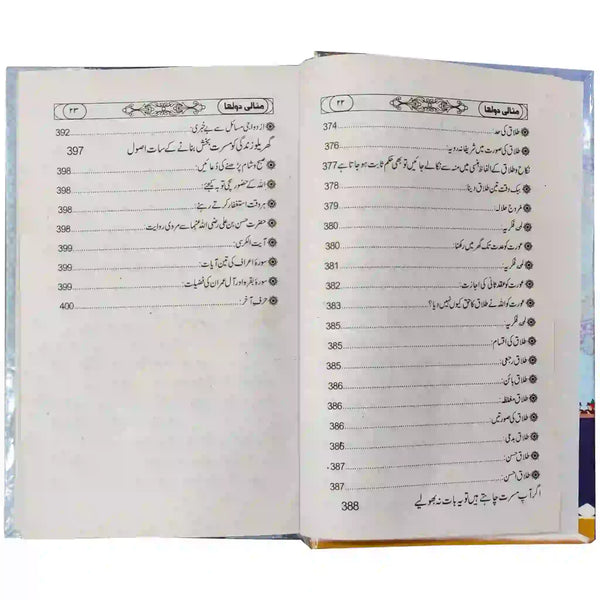 مثالی دولھا ۲۲
طلاق کی حد 374
طلاق کی صورت میں شریفانہ رویہ: 376
نکاح و طلاق کے الفاظ ہنسی میں منہ سے نکالے جائیں تو بھی حکم ثابت ہو جاتا ہے 377
بیک وقت تین طلاق دینا: 378
مروج حلالہ: 379
لمحہ فکریہ: 380
عورت کو عدت تک گھر میں رکھنا: 380
لمحہ فکریہ: 381
عورت کو عقد ثانی کی اجازت: 382
عورت کو اللہ نے طلاق کا حق کیوں نہیں دیا؟ 383
لمحہ فکریہ: 385
طلاق کی اقسام: 385
طلاق رجعی: 385
طلاق بائن: 386
طلاق مغلظہ: 386
طلاق کی صورتیں: 386
طلاق بدعی: 386
طلاق حسن: 387
طلاق احسن: 387
اگر آپ مسرت چاہتے ہیں تو یہ بات نہ بھولیے 388
مثالی دولھا ۲۳
ازدواجی مسائل سے بے خبری: 392
گھریلو زندگی کو مسرت بخش بنانے کے سات اصول 397
صبح و شام پڑھنے کی دُعائیں: 398
اللہ کے حضور یہ کہیے: 398
ہر وقت استغفار کرتے رہیے: 398
حضرت حسن بن علی رضی اللہ عنہما سے مروی روایت 398
آیت الکرسی: 399
سورۂ اعراف کی تین آیات: 399
سورۂ بقرہ اور آل عمران کی فضیلت: 399
حرف آخر: 400